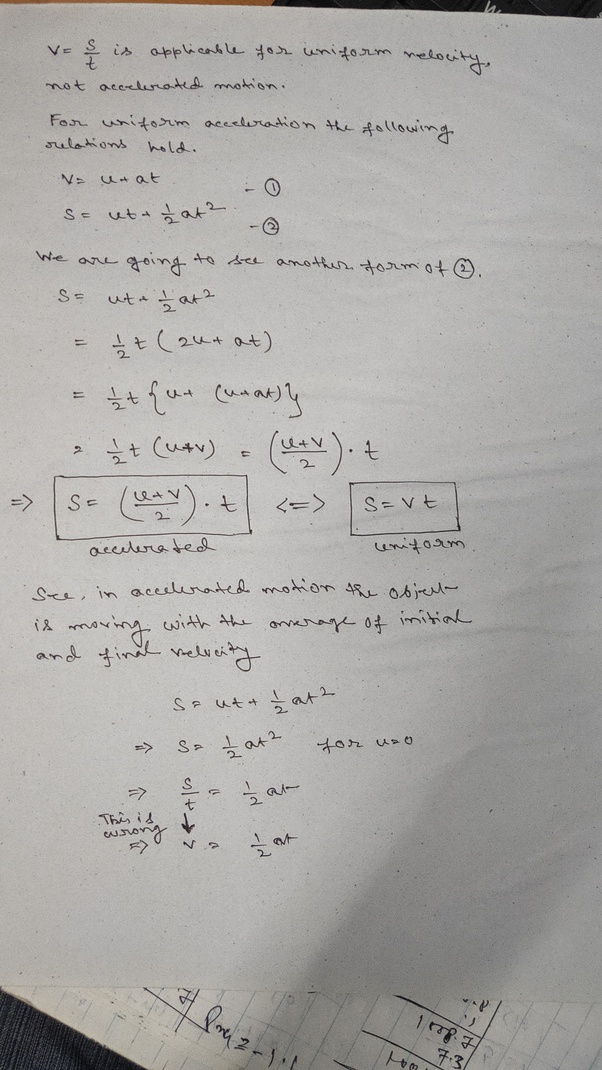 V = s/t is applicable for uniform velocity,
not accelerated motion.
For uniform acceleration the following
relations hold.
V = u + at - ①
S = ut + 1/2 at² - ②
We are going to see another form of ②.
S = ut + 1/2 at²
= 1/2 t (2u + at)
= 1/2 t {u + (u + at)}
= 1/2 t (u+v) = ((u+v)/2) · t
=> S = ((u+v)/2) · t <=> S = vt
accelerated uniform
See, in accelerated motion the object
is moving with the average of initial
and final velocity
S = ut + 1/2 at²
=> S = 1/2 at² for u=0
=> s/t = 1/2 at
This is
wrong ↓
=> v = 1/2 at
7.3